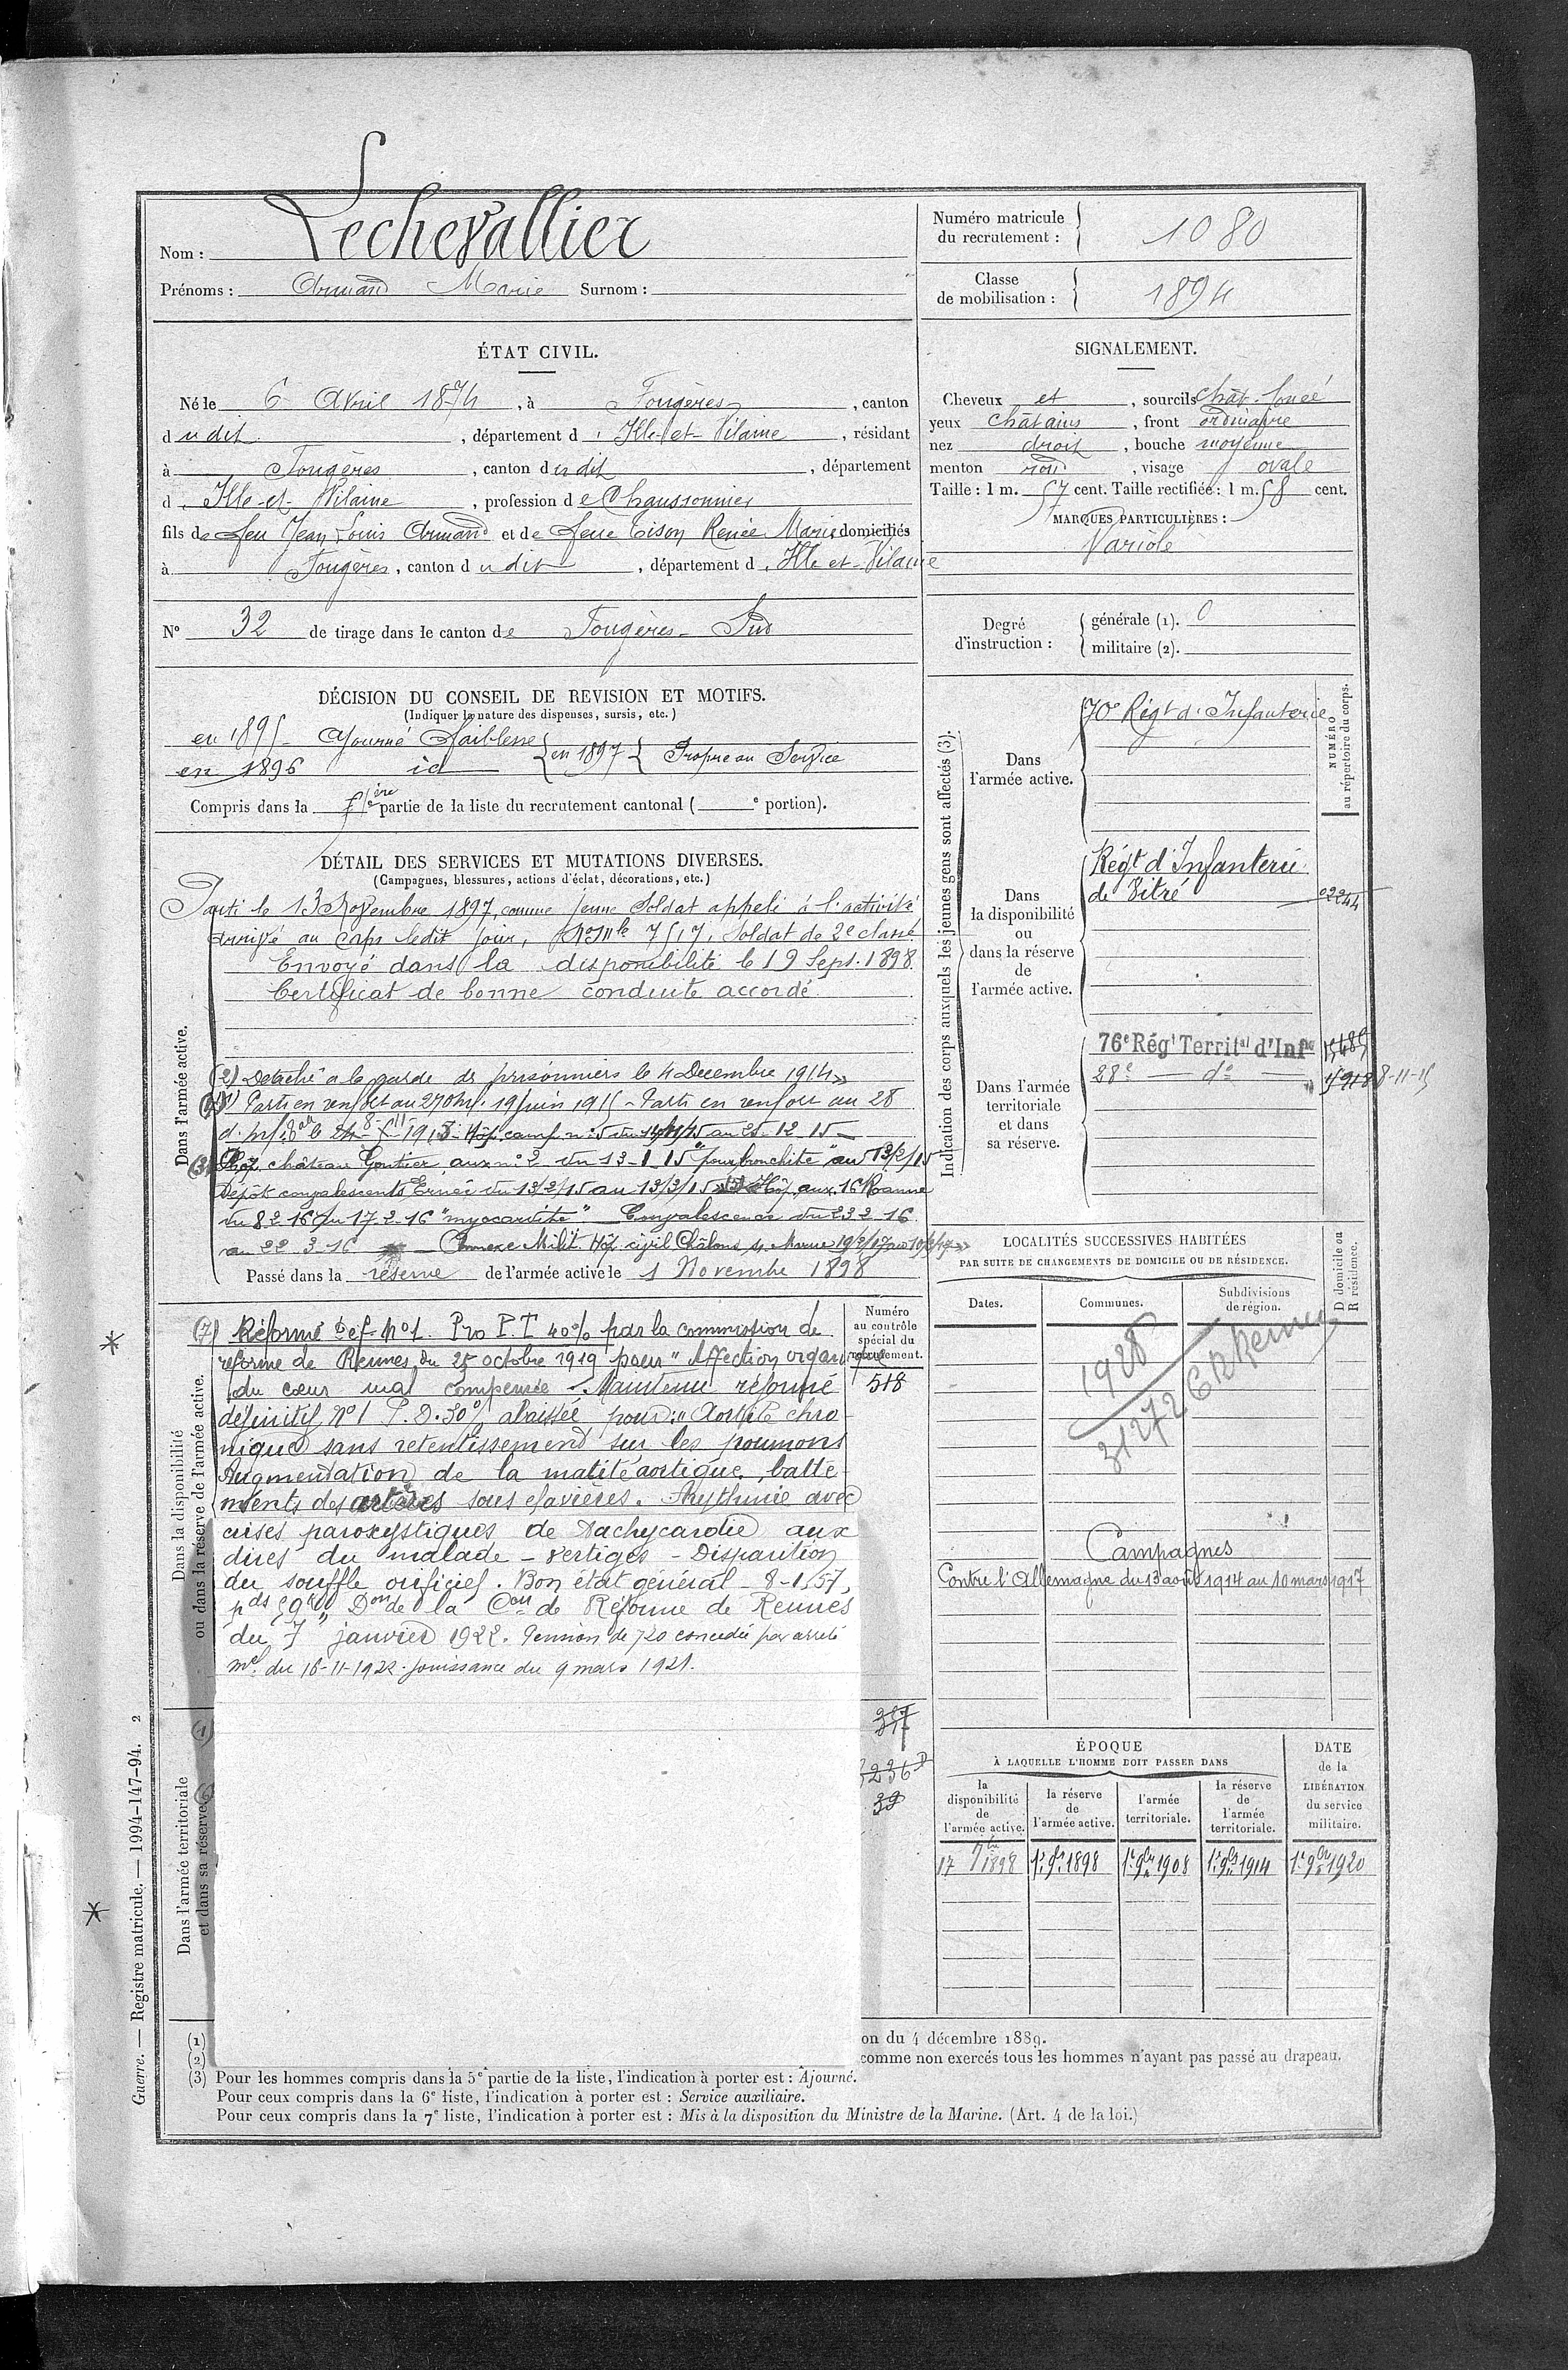 Nom : Lechevallier
Prénoms : Armand Marie Surnom :
Numéro matricule
du recrutement : 1080
Classe
de mobilisation : 1894
ÉTAT CIVIL.
Né le 6 Avril 1874, à Fougères, canton
d udit, département d'Ille-et-Vilaine, résidant
à Fougères, canton dudit, département
d'Ille-et-Vilaine, profession de Chaussonnier
fils de feu Jean Louis Armand et de feue Tison Renée Marie domiciliés
à Fougères, canton dudit, département d'Ille-et-Vilaine
N° 32 de tirage dans le canton de Fougères-Sud
SIGNALEMENT.
Cheveux et, sourcils chât. foncé
yeux châtains, front ordinaire
nez droit, bouche moyenne
menton rond, visage ovale
Taille : 1 m. 57 cent. Taille rectifiée : 1 m. 58 cent.
MARQUES PARTICULIÈRES :
Variole
Degré
d'instruction :
générale (1). 0
militaire (2).
DÉCISION DU CONSEIL DE REVISION ET MOTIFS.
(Indiquer la nature des dispenses, sursis, etc.)
en 1895 Ajourné faiblesse
en 1896 id
en 1897 Propre au Service
Compris dans la 1ère partie de la liste du recrutement cantonal ( e portion).
DÉTAIL DES SERVICES ET MUTATIONS DIVERSES.
(Campagnes, blessures, actions d'éclat, décorations, etc.)
Dans l'armée active.
Parti le 13 Novembre 1897, comme jeune Soldat appelé à l'activité
arrivé au corps ledit jour, N° Mle 7517, Soldat de 2e classe
Envoyé dans la disponibilité le 19 Sept. 1898
Certificat de bonne conduite accordé
(2) Détaché à la garde de prisonniers le 4 Décembre 1914
Parti en renfort au 270 Inf. 19 juin 1915 - Parti en renfort au 28
au 25-12-15
(3) Hôp. château Gontier aux. n° 2 du 13-1-15 "pour bronchite" au 13/2/15
Dépôt convalescents Ernée du 13/2/15 au 13/3/15 Hôp. aux. 16 Roanne
du 8 2 16 au 17-2-16 "myocardite" Convalescence du 23 2-16
au 22 3-16 Annexe Milit. Hôp. civil Châlons s. Marne 19/2/17
Passé dans la réserve de l'armée active le 1 Novembre 1898
Dans la disponibilité
ou dans la réserve de l'armée active.
Numéro
au contrôle
spécial du
recrutement.
518
(7) Réformé Def. N°1. Pro P.T 40% par la commission de
réforme de Rennes du 25 octobre 1919 pour "Affection organique
du cœur mal compensée. Maintenu réformé
définitif N°1 P.D. 30% abaissée pour : "Aortite chro-
nique sans retentissement sur les poumons
Augmentation de la matité aortique, batte-
ments des artères sous clavières. Arythmie avec
crises paroxystiques de Tachycardie aux
dires du malade - Vertiges - Disparition
du souffle orificiel. Bon état général - 8-1,57,
pds 59k" Don de la Con de Réforme de Rennes
du 7 janvier 1922. Pension de 720 concédée par arrêté
mel du 16-11-1922. jouissance du 9 mars 1921.
Dans l'armée territoriale
et dans sa réserve.
317
3236
39
Indication des corps auxquels les jeunes gens sont affectés (3).
NUMÉRO
au répertoire du corps.
Dans
l'armée active.
70e Régt d'Infanterie
Dans
la disponibilité
ou
dans la réserve
de
l'armée active.
Régt d'Infanterie
de Vitré
2244
Dans l'armée
territoriale
et dans
sa réserve.
76e Régt Territal d'Infie
28e do
8-11-15
LOCALITÉS SUCCESSIVES HABITÉES
PAR SUITE DE CHANGEMENTS DE DOMICILE OU DE RÉSIDENCE.
Dates. Communes. Subdivisions
de région.
D domicile ou
R résidence.
1928
31272 Rennes
Campagnes
Contre l'Allemagne du 13 août 1914 au 10 mars 1917
ÉPOQUE
À LAQUELLE L'HOMME DOIT PASSER DANS
la
disponibilité
de
l'armée active.
la réserve
de
l'armée active.
l'armée
territoriale.
la réserve
de
l'armée
territoriale.
DATE
de la
LIBÉRATION
du service
militaire.
17 7bre 1898 1er 9bre 1898 1er 9bre 1908 1er 9bre 1914 1er 9bre 1920
(1) on du 4 décembre 1889.
(2) comme non exercés tous les hommes n'ayant pas passé au drapeau.
(3) Pour les hommes compris dans la 5e partie de la liste, l'indication à porter est : Ajourné.
Pour ceux compris dans la 6e liste, l'indication à porter est : Service auxiliaire.
Pour ceux compris dans la 7e liste, l'indication à porter est : Mis à la disposition du Ministre de la Marine. (Art. 4 de la loi.)
Guerre. — Registre matricule. — 1994-147-94. 2